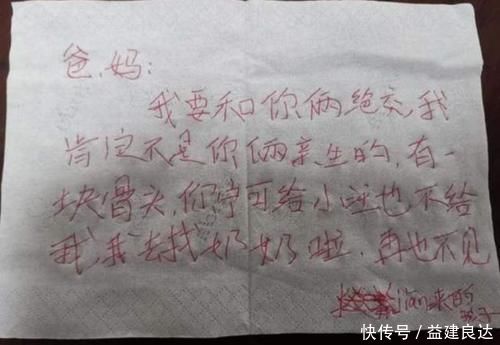 爸、妈:
我要和你俩绝交我
肯定不是你俩亲生的,有一
块骨头,你宁可给小旺也不给
我,我去找奶奶啦,再也不见
来的
孩子
快传号 / 益建良达